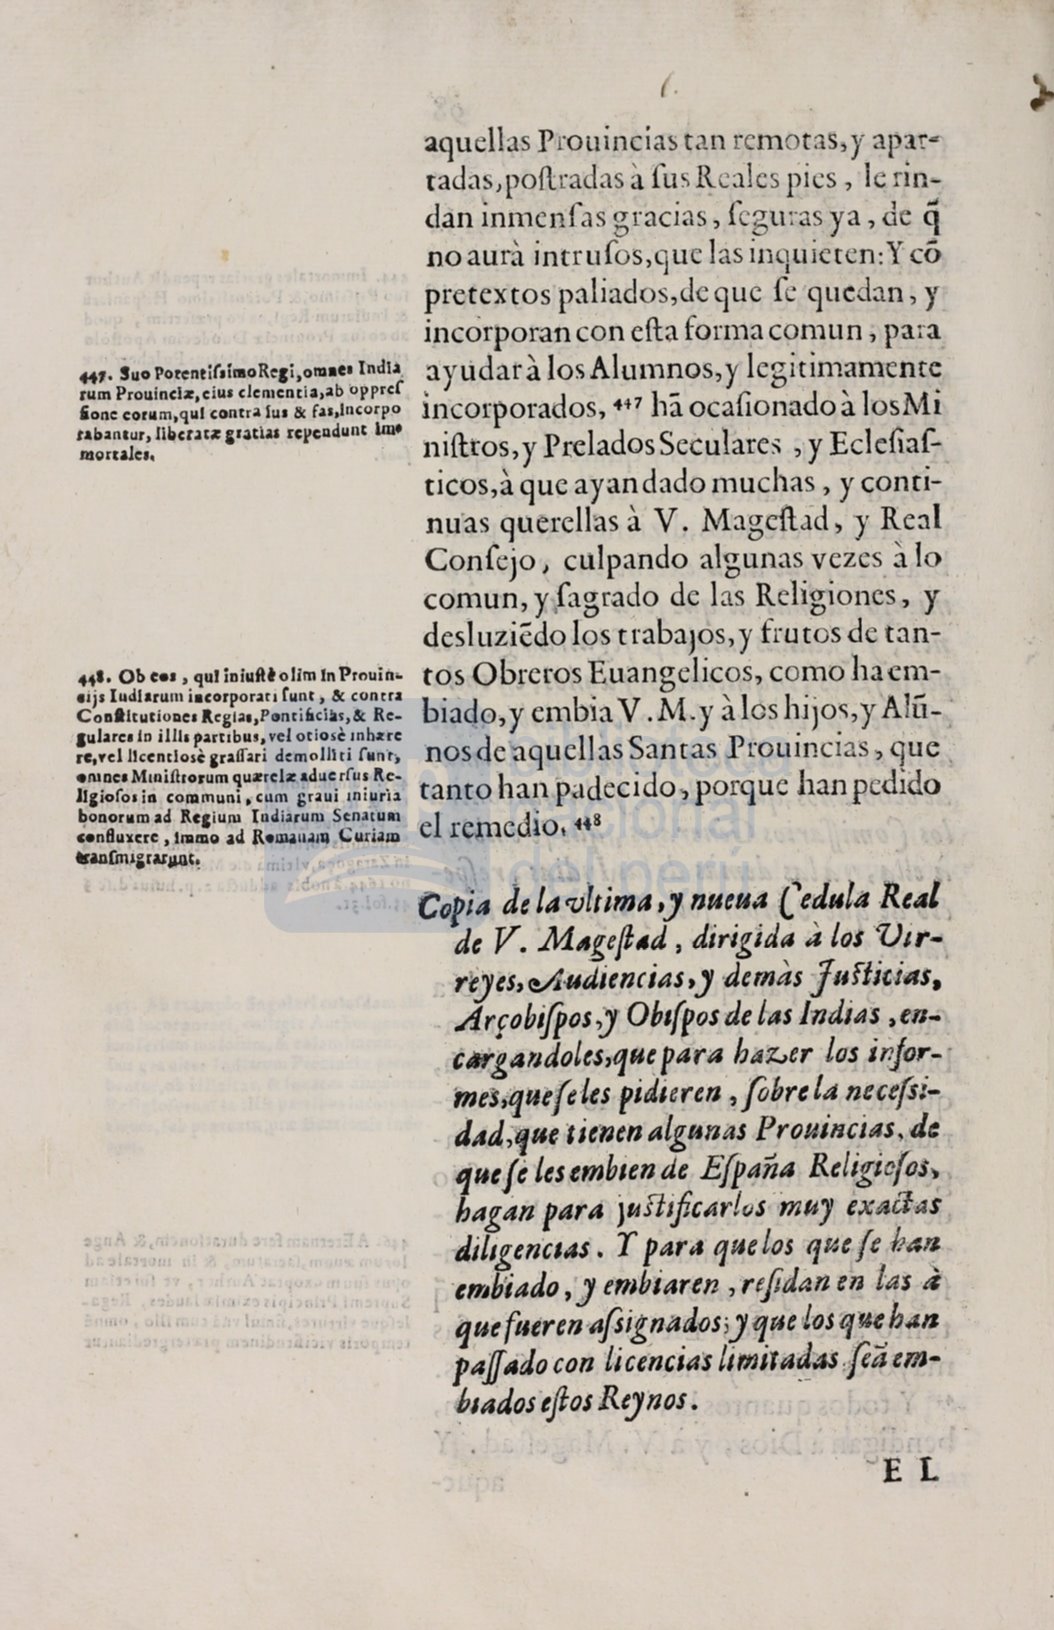 aquellas Prouincias tan remotas, y apar-
tadas, poſtradas à ſus Reales pies, le rin-
dan inmenſas gracias, ſeguras ya, de q̃
no aurà intruſos, que las inquieten: Y cõ
pretextos paliados, de que ſe quedan, y
incorporan con eſta forma comun, para
ayudar à los Alumnos, y legitimamente
incorporados, 447 hã ocaſionado à los Mi
niſtros, y Prelados Seculares, y Ecleſiaſ-
ticos, à que ayan dado muchas, y conti-
nuas querellas à V. Mageſtad, y Real
Conſejo, culpando algunas vezes à lo
comun, y ſagrado de las Religiones, y
desluziẽdo los trabajos, y frutos de tan-
tos Obreros Euangelicos, como ha em-
biado, y embia V. M. y à los hijos, y Alũ-
nos de aquellas Santas Prouincias, que
tanto han padecido, porque han pedido
el remedio. 448
447. Suo Potentiſsimo Regi, omnes India
rum Prouinciæ, eius clementia, ab oppreſ
ſione eorum, qui contra ius & fas, incorpo
rabantur, liberatæ gratias rependunt im-
mortales.
448. Ob eos, qui iniuſtè olim in Prouin-
cijs Iudiarum incorporati ſunt, & contra
Conſtitutiones Regias, Pontificias, & Re-
gulares in illis partibus, vel otiosè inhære
re, vel licentiosè graſſari demolliti ſunt,
omnes Miniſtrorum quærelæ aduerſus Re-
ligioſos in communi, cum graui iniuria
bonorum ad Regium Indiarum Senatum
confluxere, immo ad Romanam Curiam
tranſmigrarunt.
Copia de la vltima, y nueua Cedula Real
de V. Mageſtad, dirigida à los Vir-
reyes, Audiencias, y demàs Juſticias,
Arçobiſpos, y Obiſpos de las Indias, en-
cargandoles, que para hazer los infor-
mes, que ſe les pidieren, ſobre la neceſsi-
dad, que tienen algunas Prouincias, de
que ſe les embien de Eſpaña Religioſos,
hagan para juſtificarlos muy exactas
diligencias. Y para que los que ſe han
embiado, y embiaren, reſidan en las à
que fueren aſsignados; y que los que han
paſſado con licencias limitadas ſeã em-
biados eſtos Reynos.
E L